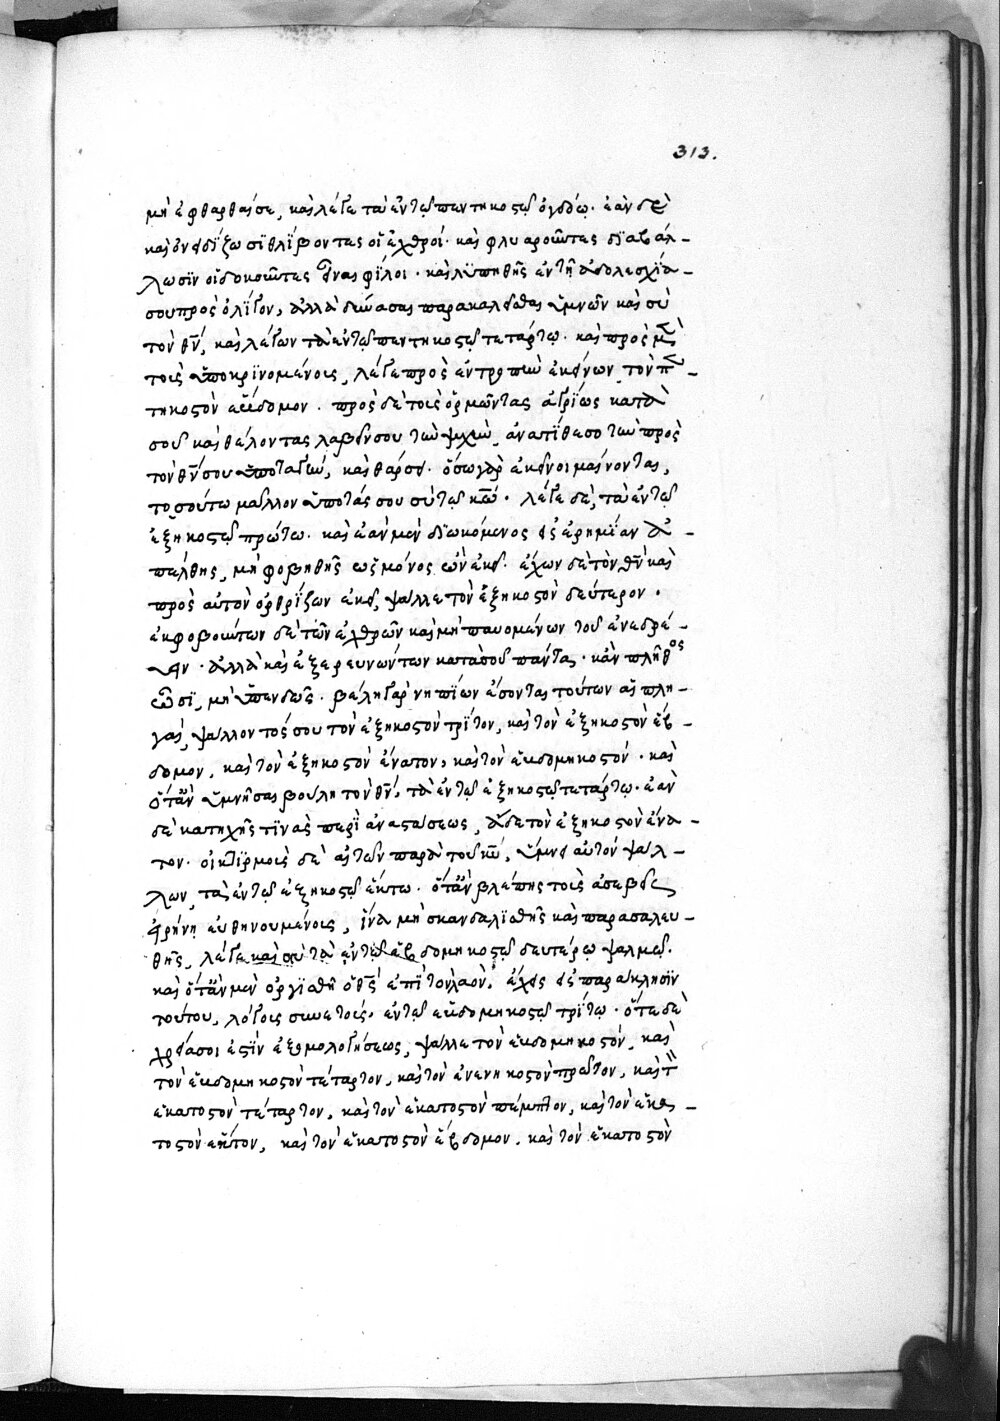 313.
μὴ ἐφθαρθαί σε, καὶ λέγε τὰ ἐν τῷ πεντηκοστῷ ὀγδόῳ. ἐὰν δὲ
καὶ ὀνειδίζωσι θλίβοντες οἱ ἐχθροί. καὶ φλυαροῦντες διαβάλ-
λωσιν οἱ δοκοῦντες εἶναι φίλοι. καὶ λυπηθῇς ἐν τῇ ἀδολεσχίᾳ
σου πρὸς ὀλίγον, ἀλλὰ δύνασαι παρακαλεῖσθαι ὑμνῶν καὶ σὺ
τὸν θν, καὶ λέγων τὰ ἐν τῷ πεντηκοστῷ τετάρτῳ. καὶ πρὸς μὲν
τοὺς ὑποκρινομένους, λέγε πρὸς ἐντροπὴν ἐκείνων τὸν πεν-
τηκοστὸν ἕβδομον. πρὸς δὲ τοὺς ὁρμῶντας ἀγρίως κατὰ
σοῦ καὶ θέλοντας λαβεῖν σου τὴν ψυχὴν, ἀνατίθεσο τὴν πρὸς
τὸν θν σου ὑποταγὴν, καὶ θάρσει. ὅσῳ γὰρ ἐκεῖνοι μαίνονται,
τοσούτῳ μᾶλλον ὑποτάσσου σὺ τῷ κω. λέγε δὲ, τὰ ἐν τῷ
ἑξηκοστῷ πρώτῳ. καὶ ἐὰν μὲν διωκόμενος εἰς ἐρημίαν ἀ-
πέλθῃς, μὴ φοβηθῇς ὡς μόνος ὢν ἐκεῖ. ἔχων δὲ τὸν θν καὶ
πρὸς αὐτὸν ὀρθρίζων ἐκεῖ, ψάλλε τὸν ἑξηκοστὸν δεύτερον.
ἐκφοβούντων δὲ τῶν ἐχθρῶν καὶ μὴ παυομένων τοῦ ἐνεδρεύ-
ειν. ἀλλὰ καὶ ἐξερευνώντων κατὰ σοῦ πάντα. κἂν πλῆθος
ὦσι, μὴ ὑπενδῷς. βέλη γὰρ νηπίων ἔσονται τούτων αἱ πλη-
γαὶ, ψάλλοντός σου τὸν ἑξηκοστὸν τρίτον, καὶ τὸν ἑξηκοστὸν ἕβ-
δομον, καὶ τὸν ἑξηκοστὸν ἔνατον, καὶ τὸν ἑβδομηκοστόν. καὶ
ὅταν ὑμνῆσαι βούλῃ τὸν θν, τὰ ἐν τῷ ἑξηκοστῷ τετάρτῳ. ἐὰν
δὲ κατηχῇς τινὰς περὶ ἀναστάσεως, ᾆδε τὸν ἑξηκοστὸν ἔνα-
τον. οἰκτιρμοὺς δὲ αἰτῶν παρὰ τοῦ κυ, ὕμνει αὐτὸν ψάλ-
λων, τὰ ἐν τῷ ἑξηκοστῷ ἕκτῳ. ὅταν βλέπῃς τοὺς ἀσεβεῖς
εἰρήνῃ εὐθηνουμένους, ἵνα μὴ σκανδαλισθῇς καὶ παρασαλευ-
θῇς, λέγε καὶ σὺ τὰ ἐν τῷ ἑβδομηκοστῷ δευτέρῳ ψαλμῷ.
καὶ ὅταν μὲν ὀργισθῇ ὁ θς ἐπὶ τὸν λαὸν, ἔχεις εἰς παράκλησιν
τούτου, λόγους συνετοὺς, ἐν τῷ ἑβδομηκοστῷ τρίτῳ. ὅτε δὲ
χρεία σοι ἐστὶν ἐξομολογήσεως, ψάλλε τὸν ἑβδομηκοστὸν, καὶ
τὸν ἑβδομηκοστὸν τέταρτον, καὶ τὸν ἐνενηκοστὸν πρῶτον, καὶ τ
ἑκατοστὸν τέταρτον, καὶ τὸν ἑκατοστὸν πέμπτον, καὶ τὸν ἑκα-
τοστὸν ἕκτον, καὶ τὸν ἑκατοστὸν ἕβδομον, καὶ τὸν ἑκατοστὸν